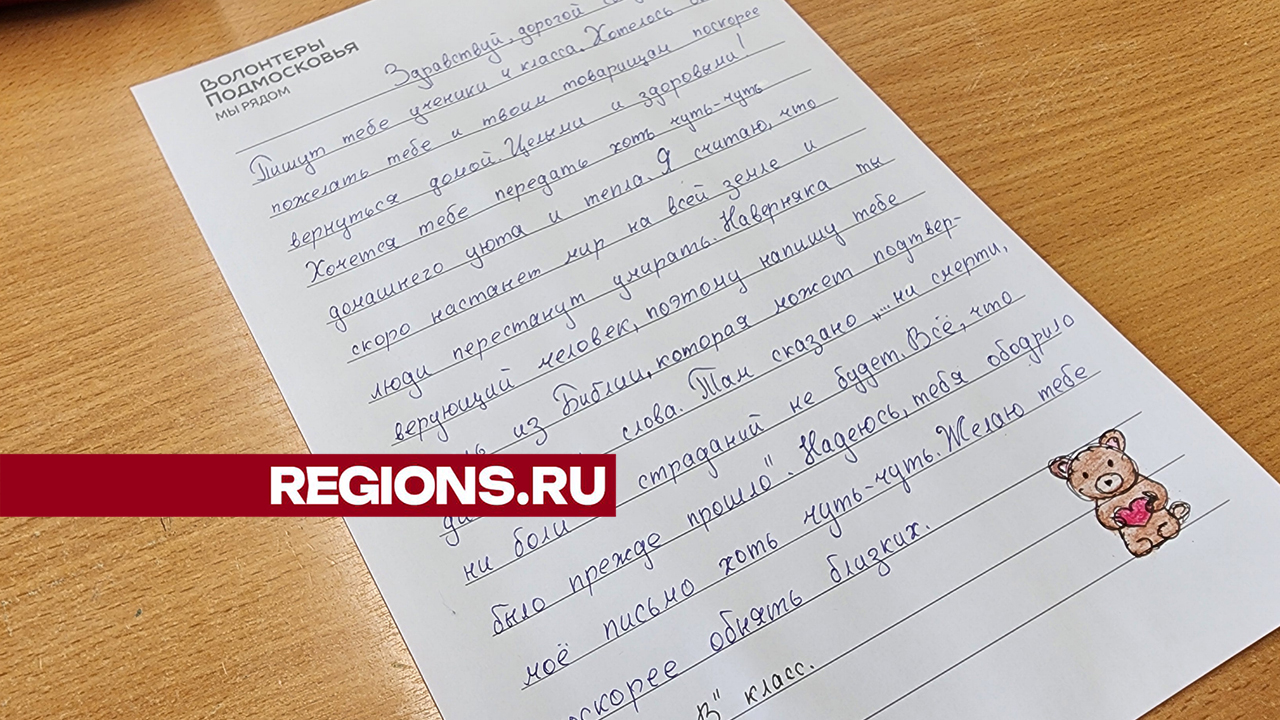 ВОЛОНТЕРЫ
ПОДМОСКОВЬЯ
МЫ РЯДОМ
Здравствуй, дорогой
Пишут тебе ученики 4 класса. Хотелось
пожелать тебе и твоим товарищам поскорее
вернуться домой. Целыми и здоровыми!
Хочется тебе передать хоть чуть-чуть
домашнего уюта и тепла. Я считаю, что
скоро настанет мир на всей земле и
люди перестанут умирать. Наверняка ты
верующий человек, поэтому напишу тебе
из Библии, которая может подтвер-
слова. Там сказано „...ни смерти,
ни боли страданий не будет. Всё, что
было прежде прошло". Надеюсь, тебя ободрило
моё письмо хоть чуть-чуть. Желаю тебе
обнять близких.
В" класс.
REGIONS.RU